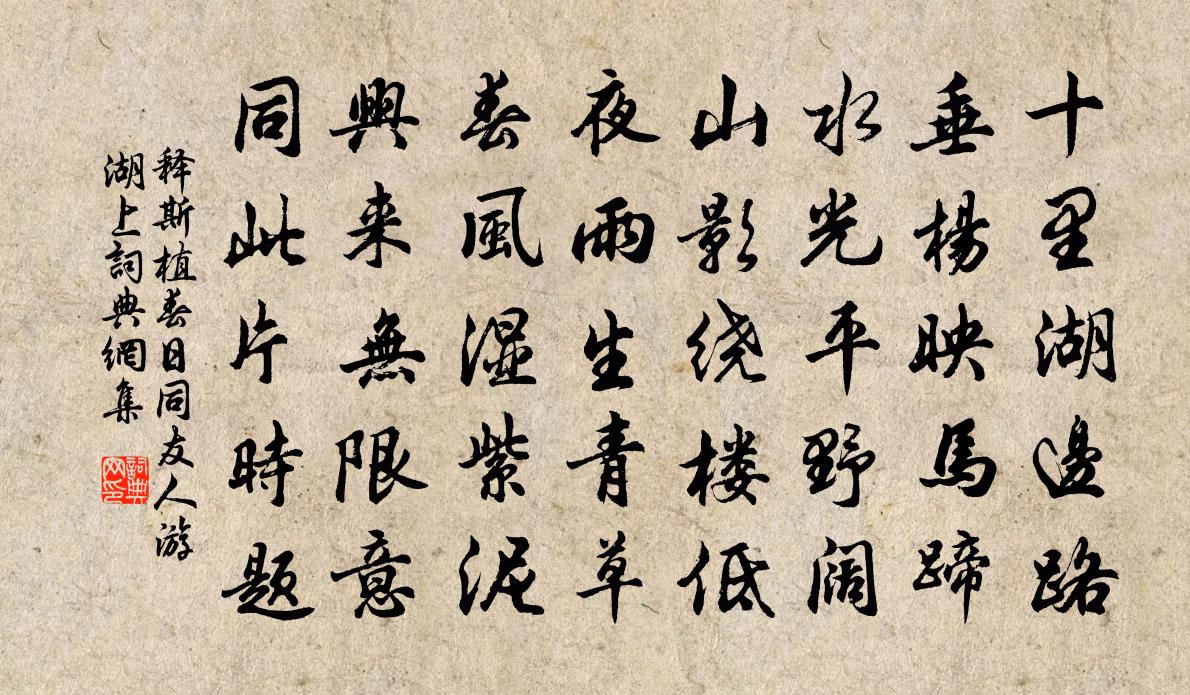 十里湖邊路
垂楊映馬蹄
水光平野闊
山影绕楼低
夜雨生青草
春風湿紫泥
興来無限意
同此片時题
释斯植春日同友人游
湖上詞典網集
詞典网印